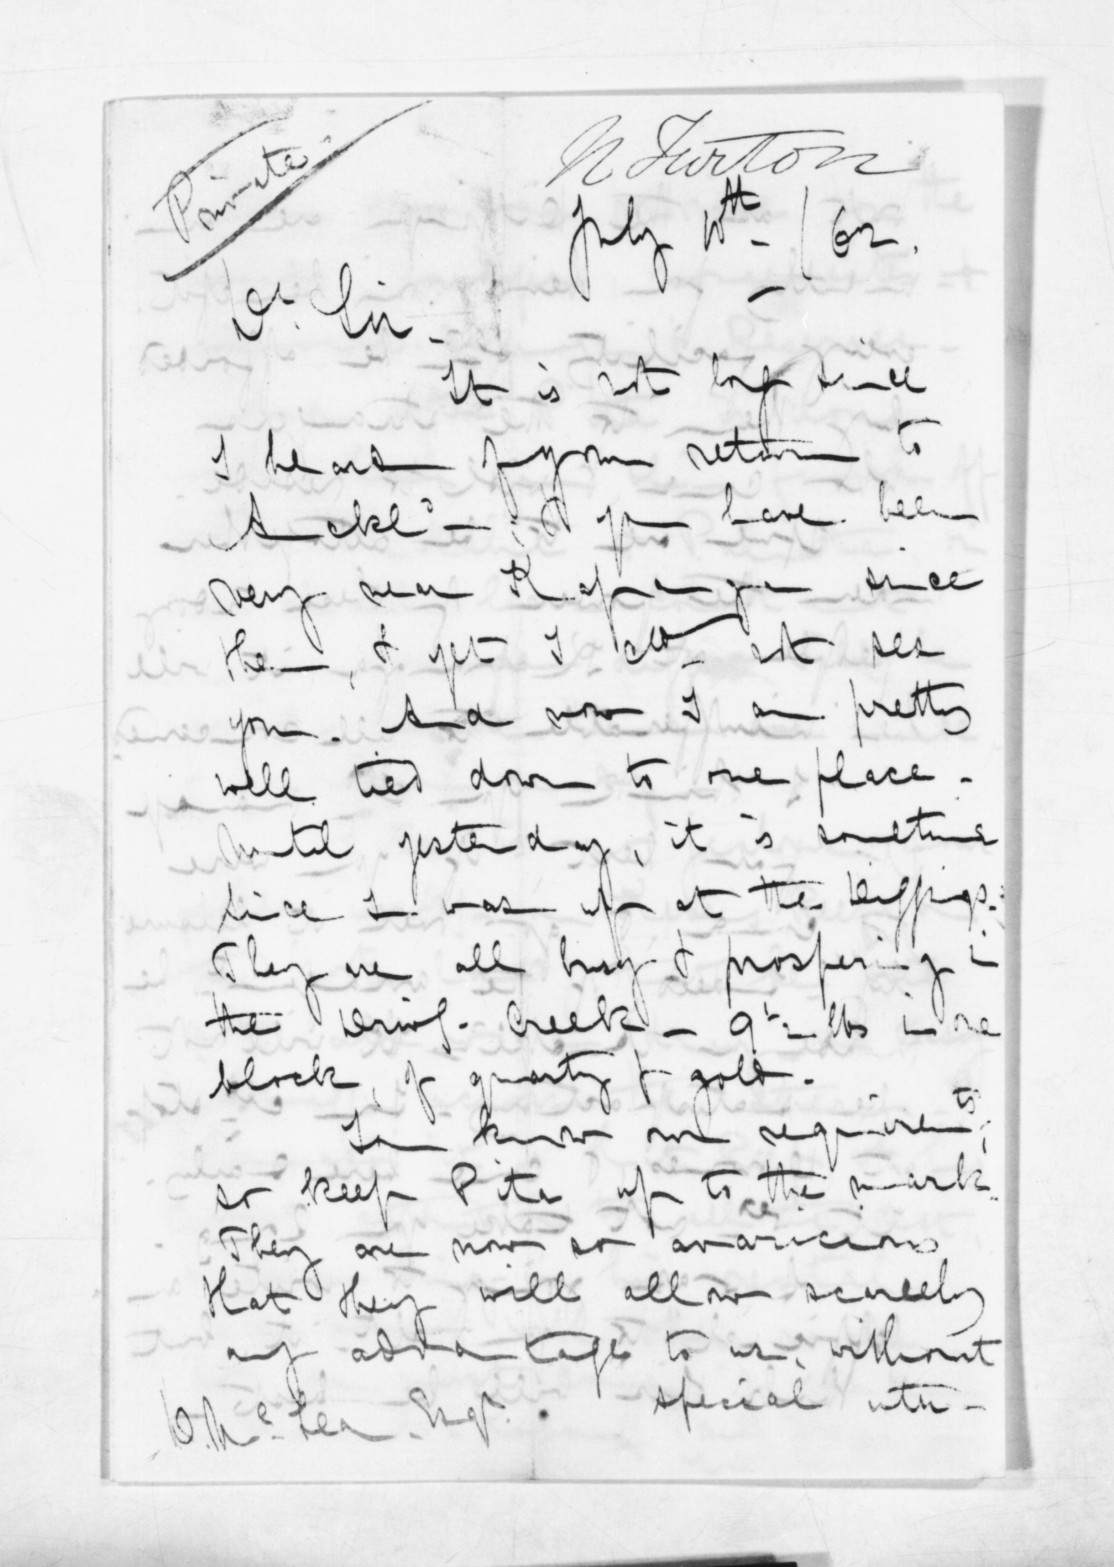 Private
N Turton
July 10th - / 62.
Dr. Sir.
It is not long since
I heard of your return to
Auckld - & you have been
very near Kapanga since
then, & yet I did not see
you. And now I am pretty
well tied down to one place -
Until yesterday, it is sometime
since I was up at the Diggings.
They are all busy & prospering in
the Driving Creek - 9 lbs in one
block, of quartz & gold.
You know our requiremts;
so keep Pita up to the mark.
They are now so avaricious
that they will allow scarcely
any advantage to us, without
special
D. McLean Esqr.